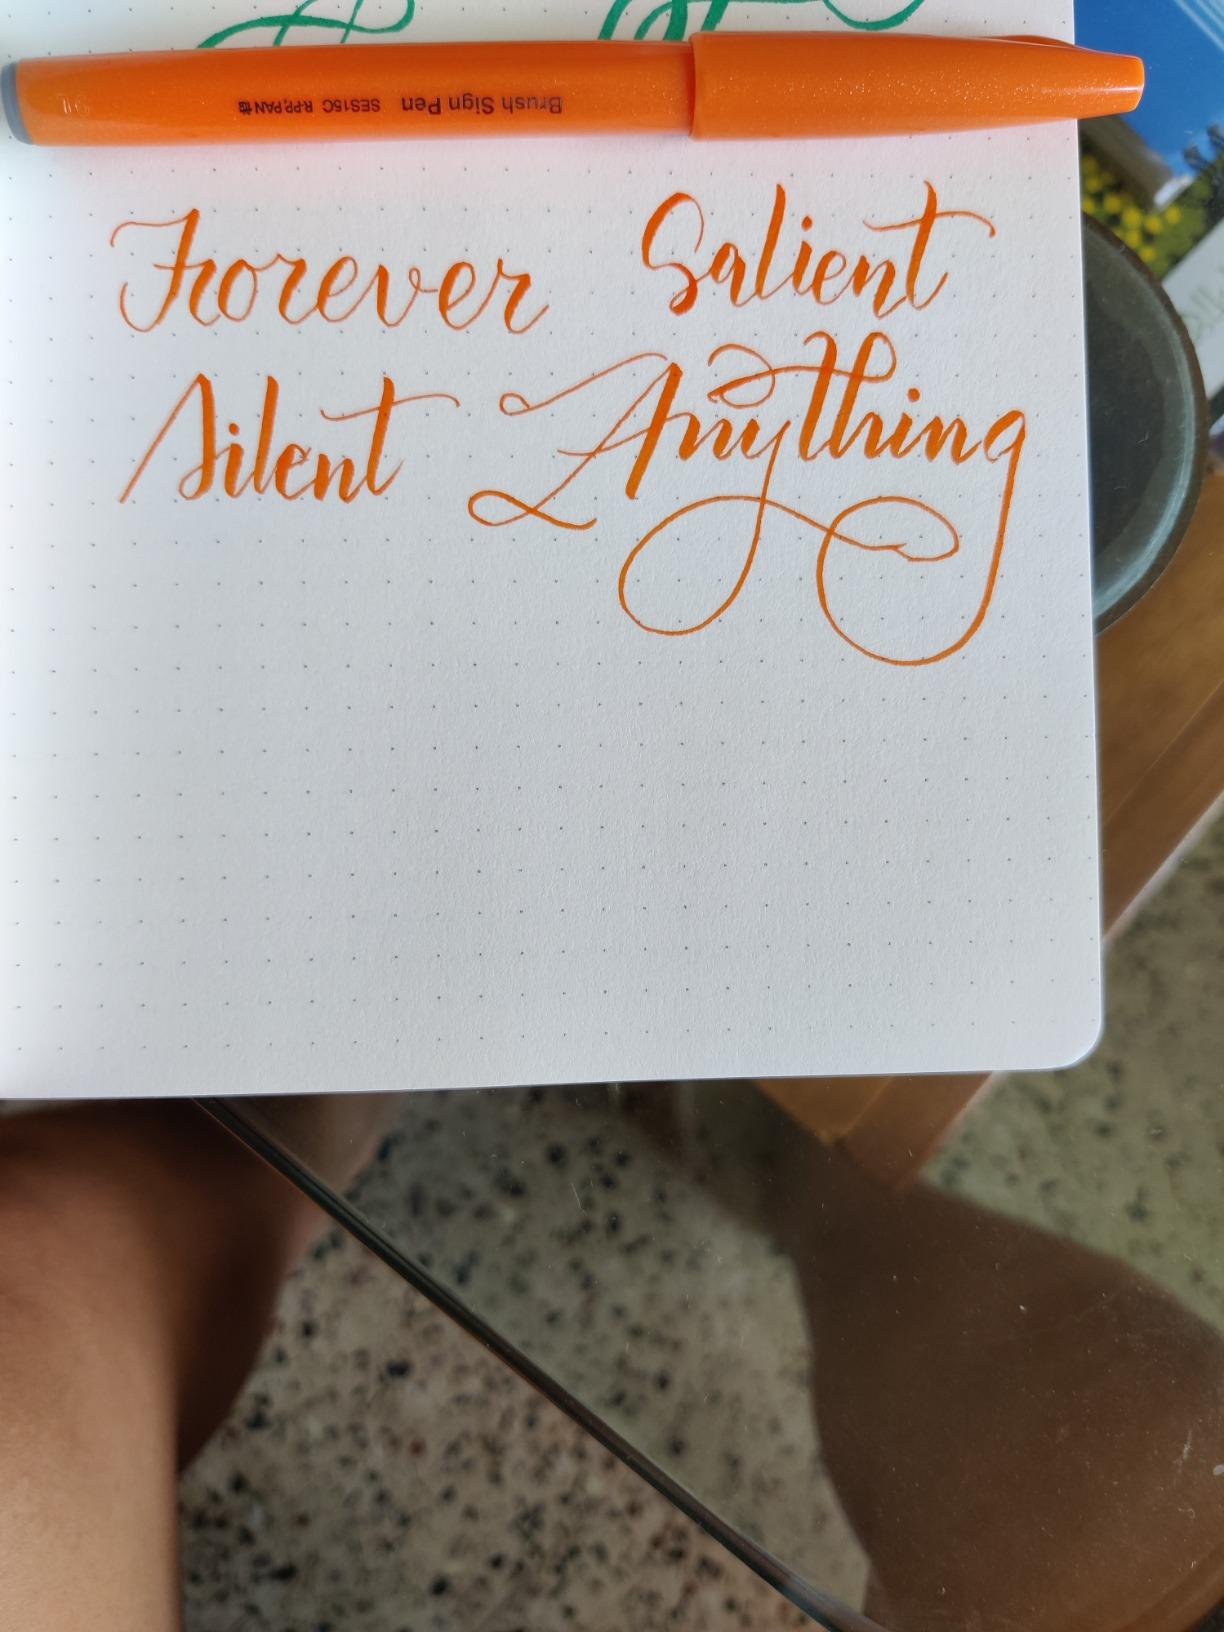 Brush Sign Pen SES15C R·PP,PAN
Forever Salient
Silent Anything